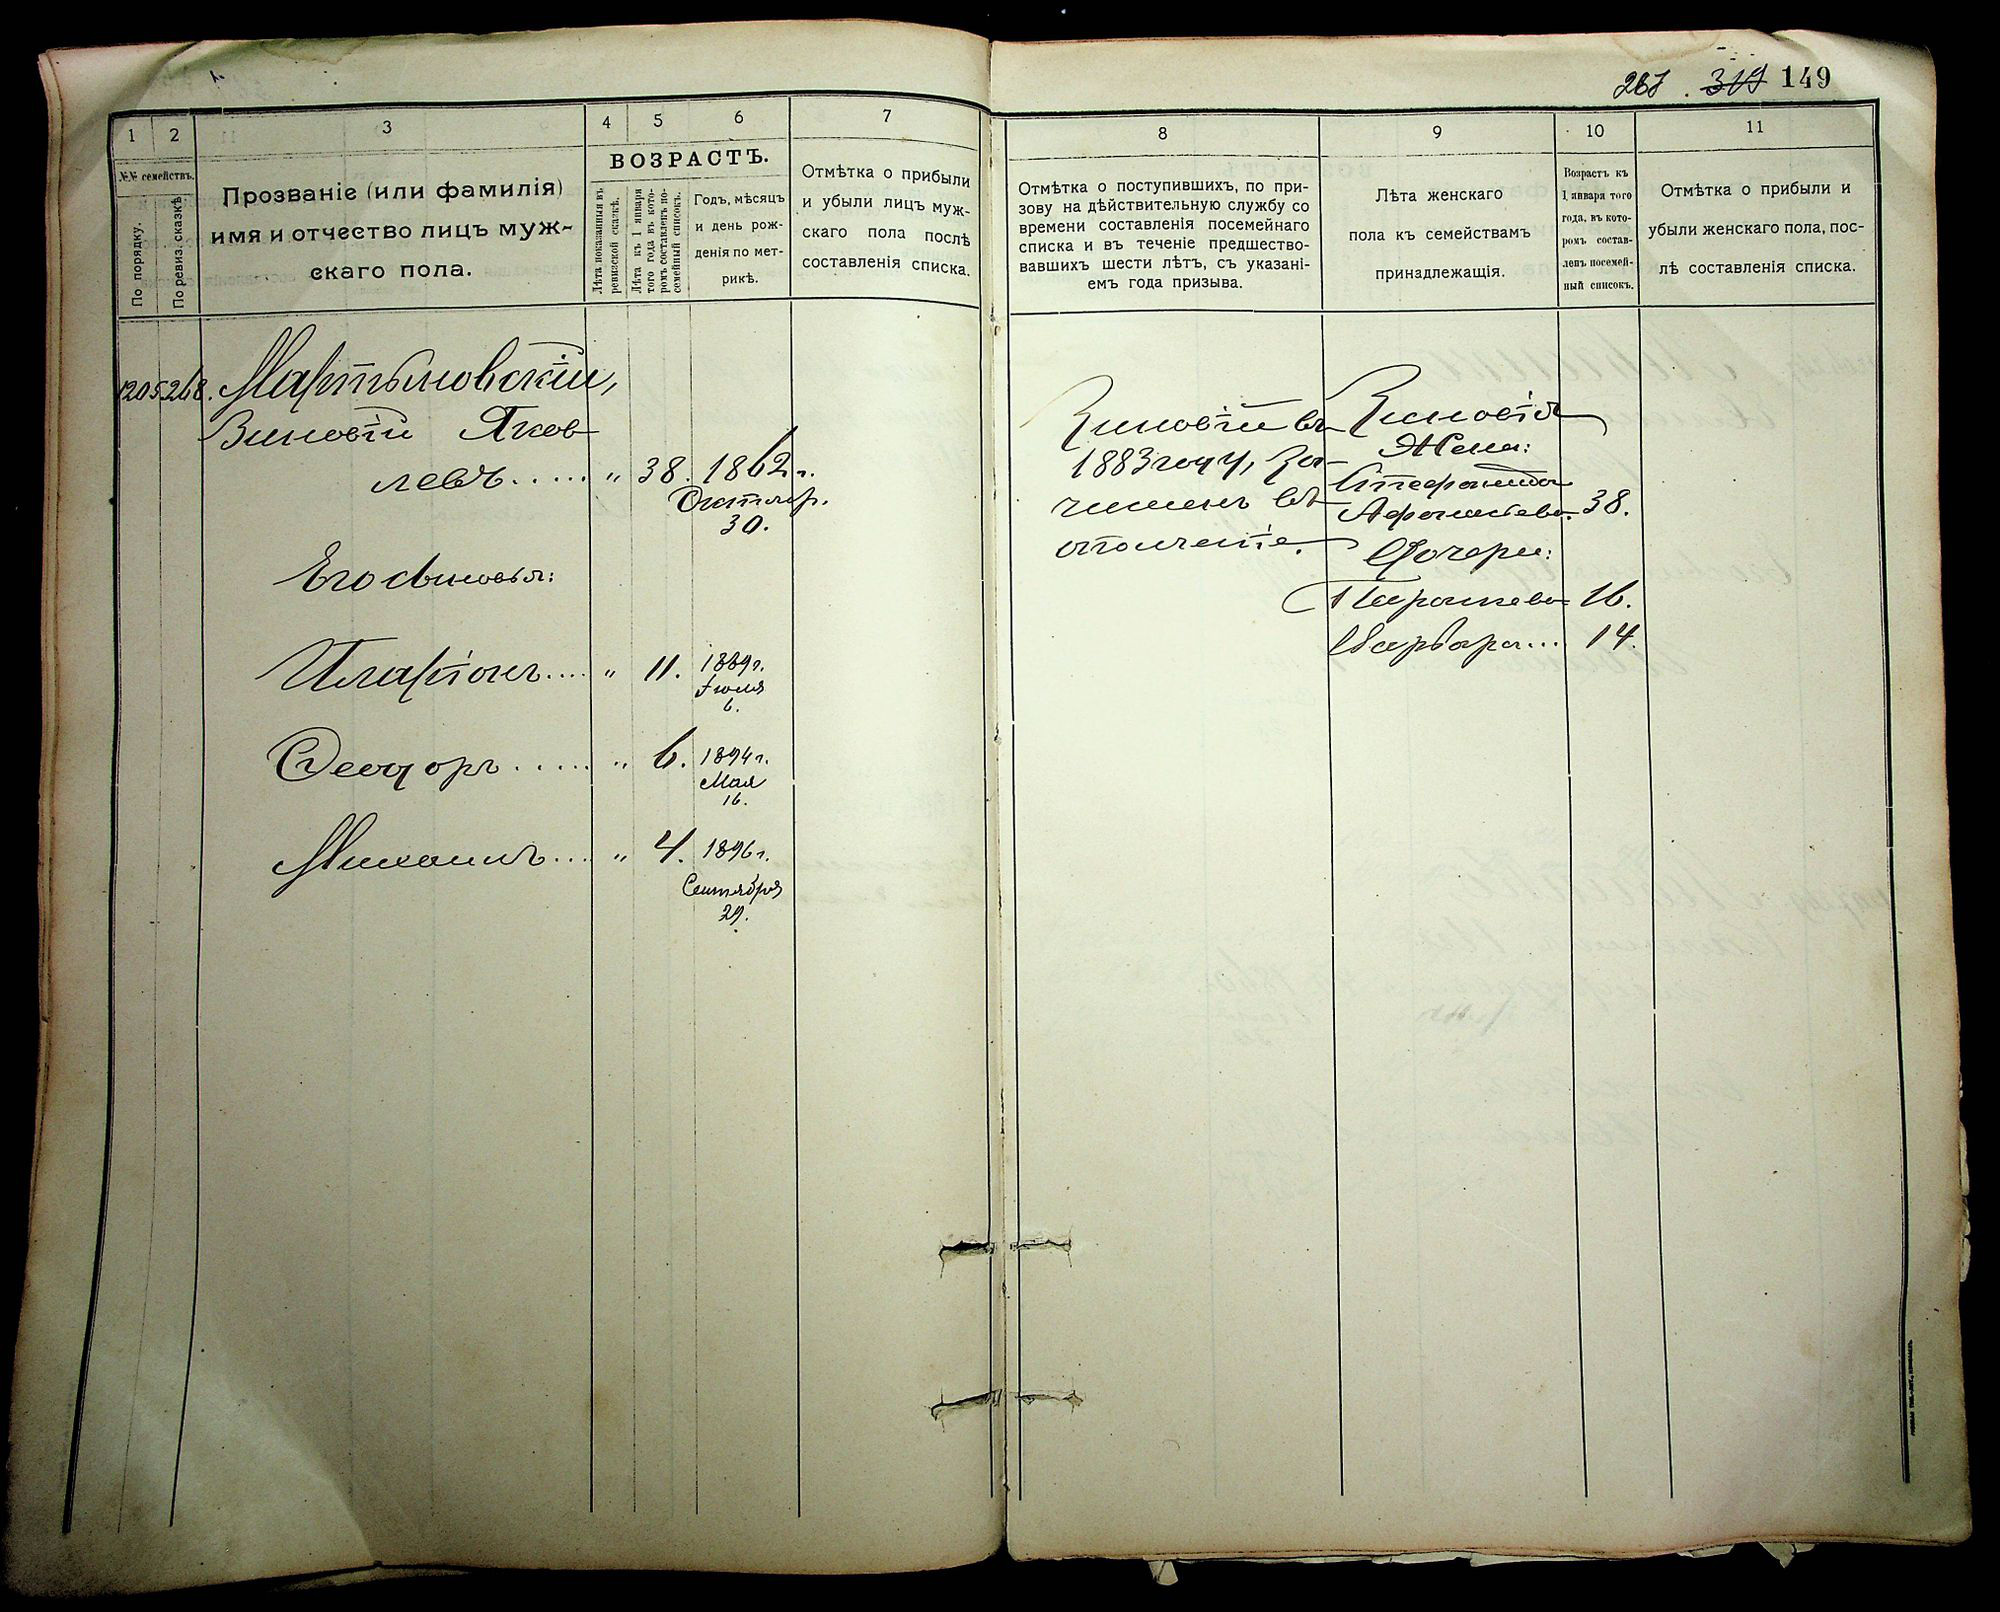 267. 319 149
1
2
3
4
5
6
7
№№ семействъ.
По порядку.
По ревиз. сказкѣ
Прозваніе (или фамилія)
имя и отчество лицъ муж-
скаго пола.
ВОЗРАСТЪ.
Лѣта показанныя въ
ревизской сказкѣ.
Лѣта къ 1 января
того года въ кото-
ромъ составленъ по-
семейный списокъ.
Годъ, мѣсяцъ
и день рож-
денія по мет-
рикѣ.
Отмѣтка о прибыли
и убыли лицъ муж-
скаго пола послѣ
составленія списка.
1205. 268. Мартыновскій,
Зиновій Яков
левъ..... „ 38. 1862 г.
Октябр.
30.
Его сыновья:
Платонъ.... „ 11. 1889 г.
Іюля
6.
Ѳеодоръ..... „ 6. 1894 г.
Мая
16.
Михаилъ.... „ 4. 1896 г.
Сентября
29.
8
9
10
11
Отмѣтка о поступившихъ, по при-
зову на дѣйствительную службу со
времени составленія посемейнаго
списка и въ теченіе предшество-
вавшихъ шести лѣтъ, съ указані-
емъ года призыва.
Лѣта женскаго
пола къ семействамъ
принадлежащія.
Возрастъ къ
1 января того
года, въ кото-
ромъ состав-
ленъ посемей-
ный списокъ.
Отмѣтка о прибыли и
убыли женскаго пола, пос-
лѣ составленія списка.
Зиновій въ
1883 году, за-
численъ въ
ополченіе.
Зиновія
Жена:
Стефанида
Афанасьева. 38.
Дочери:
Параскева 16.
Варвара... 14.